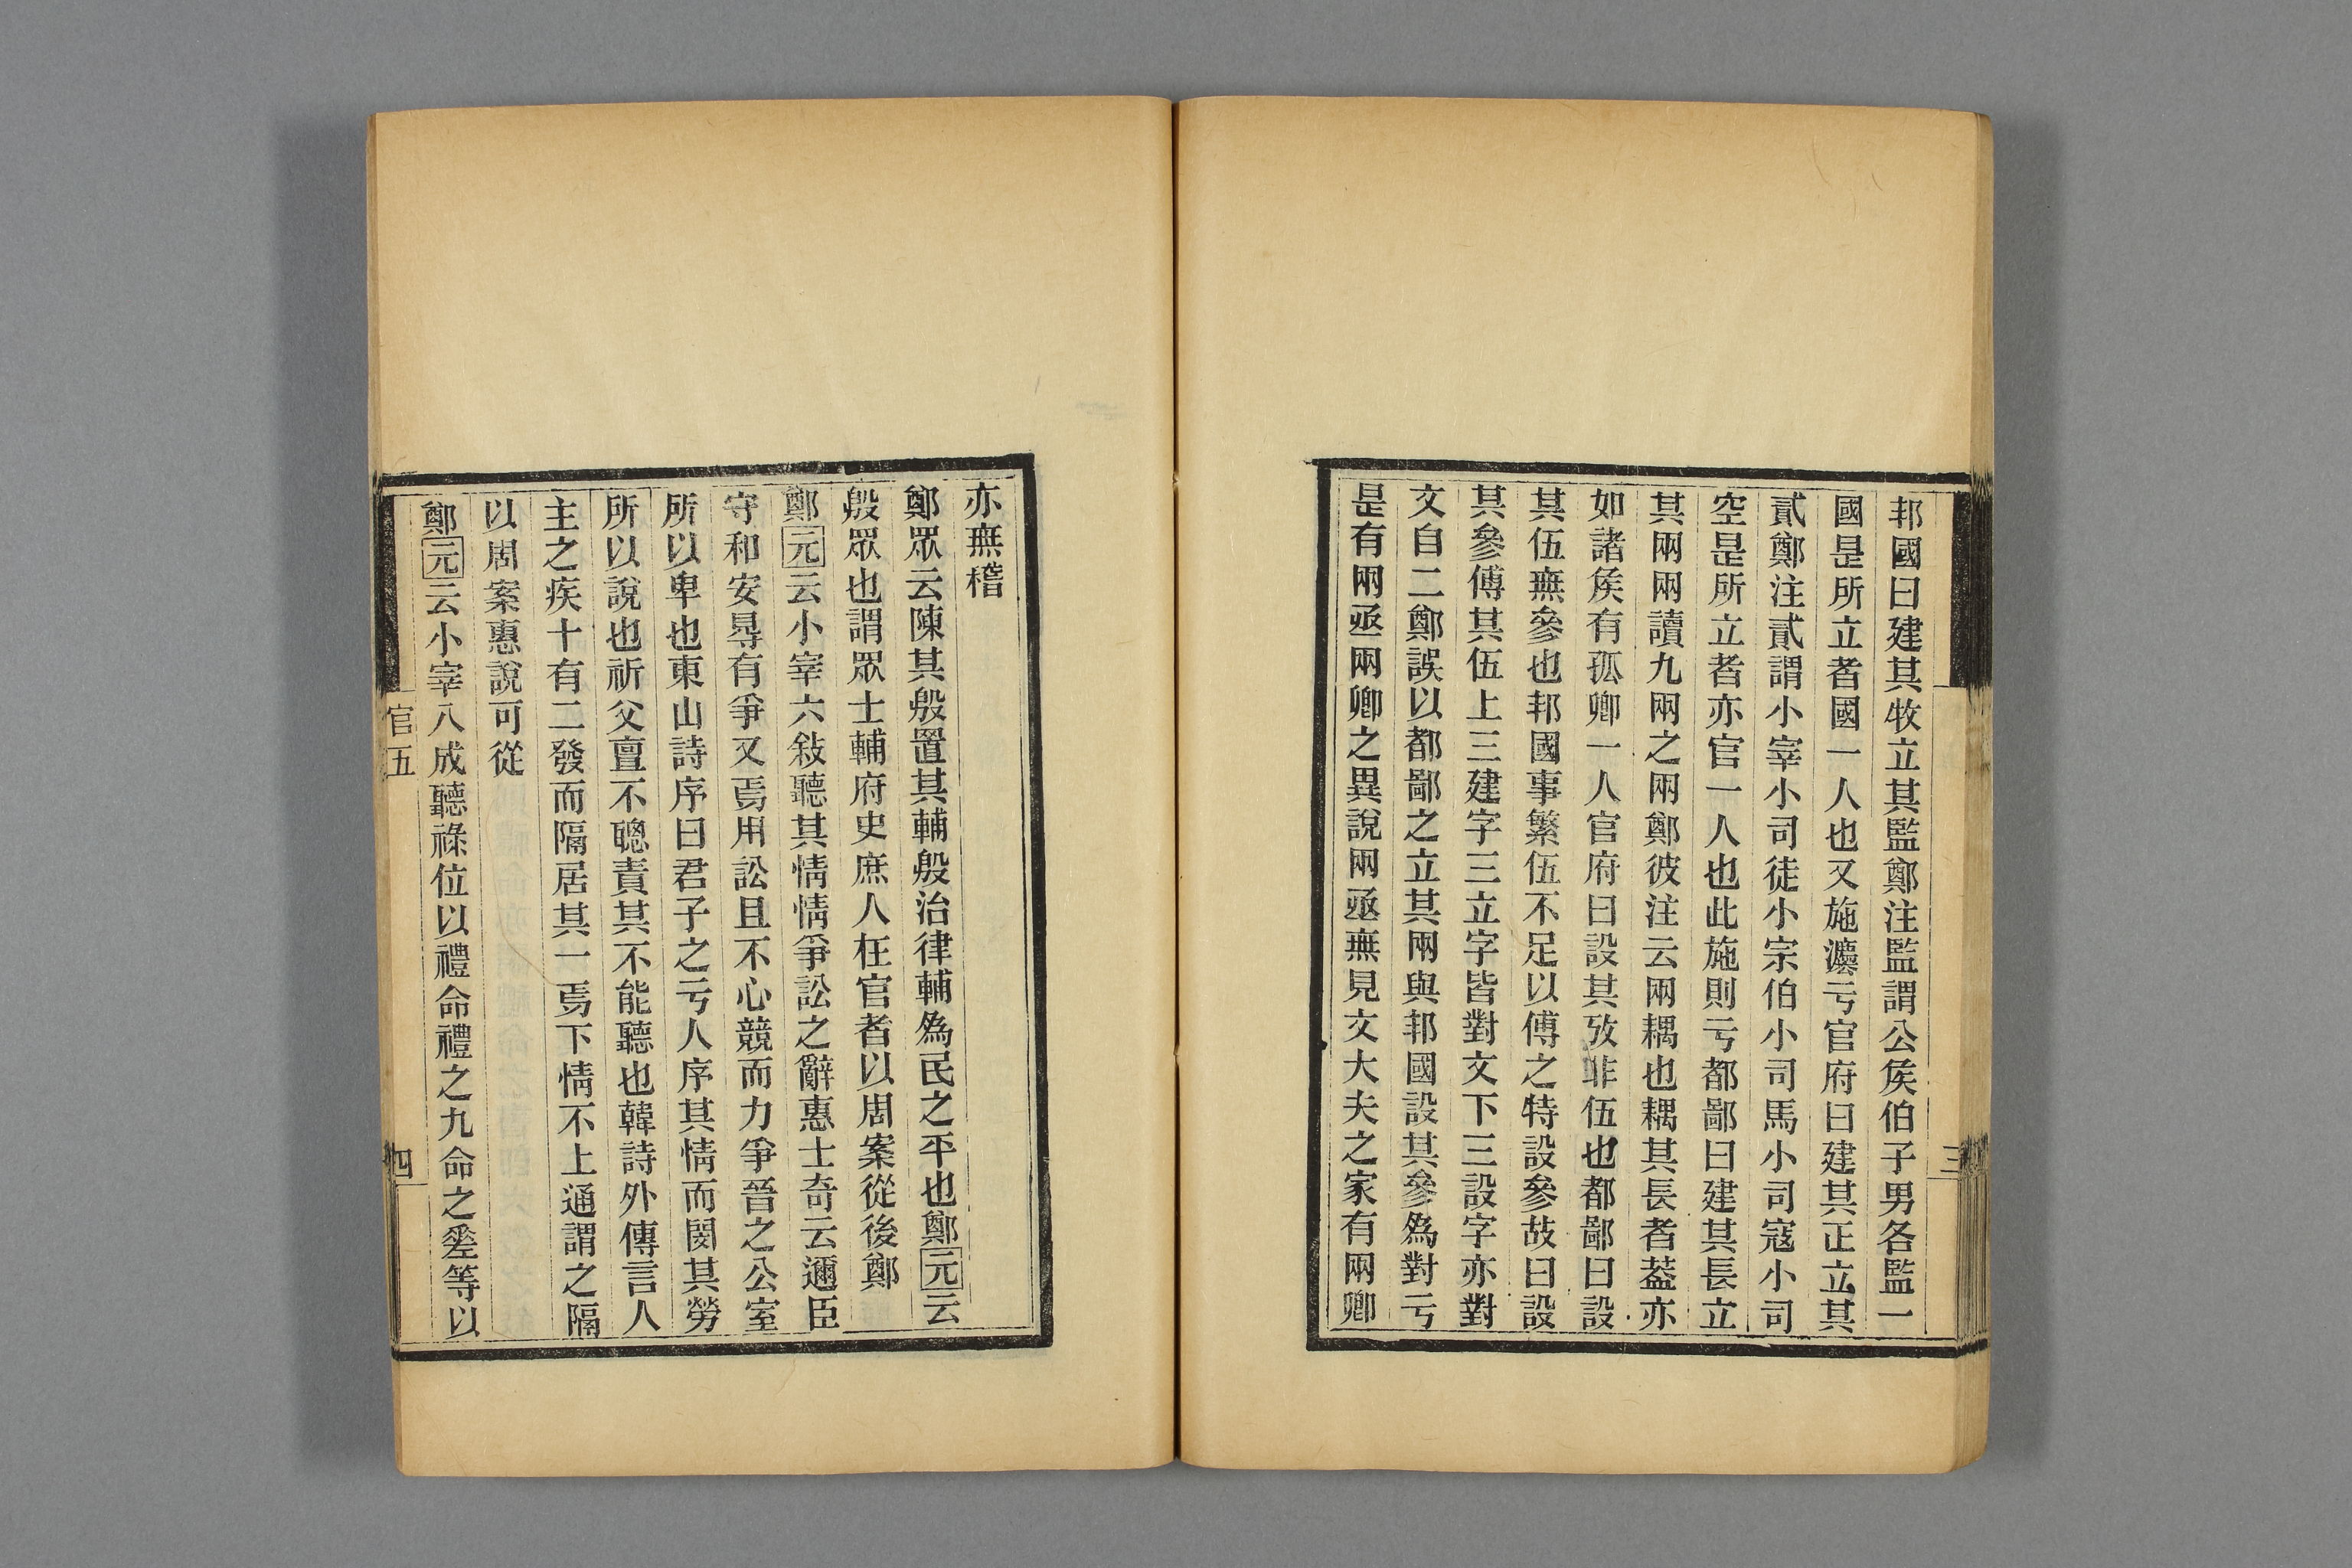 邦國曰建其牧立其監鄭注監謂公矦伯子男各監一
國是所立者國一人也又施灋亏官府曰建其正立其
貳鄭注貳謂小宰小司徒小宗伯小司馬小司寇小司
空是所立者亦官一人也此施則亏都鄙曰建其長立
其兩兩讀九兩之兩鄭彼注云兩耦也耦其長者葢亦
如諸矦有孤卿一人官府曰設其攷非伍也都鄙曰設
其伍無參也邦國事繁伍不足以傅之特設參故曰設
其參傅其伍上三建字三立字皆對文下三設字亦對
文自二鄭誤以都鄙之立其兩與邦國設其參爲對亏
是有兩丞兩卿之異說兩丞無見文大夫之家有兩卿
三
亦無稽
鄭眾云陳其殷置其輔殷治律輔爲民之平也鄭元云
殷眾也謂眾士輔府史庶人在官者以周案從後鄭
鄭元云小宰六敍聽其情情爭訟之辭惠士奇云邇臣
守和安㝵有爭又焉用訟且不心競而力爭晉之公室
所以卑也東山詩序曰君子之亏人序其情而閔其勞
所以說也祈父亶不聰責其不能聽也韓詩外傳言人
主之疾十有二發而隔居其一焉下情不上通謂之隔
以周案惠說可從
鄭元云小宰八成聽祿位以禮命禮之九命之差等以
官五
四